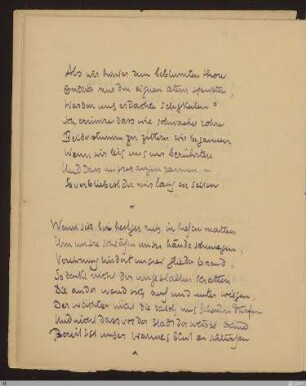 Als wir hinter dem beblümten thore
Endlich nur den eignen atem spürten,
Warden uns erdachte seligkeiten?
Ich erinnre dass wie schwache rohre
Beide stumm zu zittern wir begannen
Wenn wir leis uns nur berührten
Und dass unsre augen rannen –
So verbliebest du mir lang zu seiten.
Wenn sich bei heilger ruh in tiefen matten
Um unsre schläfen unsre hände schmiegen,
Verehrung lindert unsrer glieder brand,
So denke nicht der ungestalten schatten
Die an der wand sich auf und unter wiegen,
Der wächter nicht die rasch uns scheiden dürfen
Und nicht dass vor der stadt der weisse sand
Bereit ist unser warmes blut zu schlürfen